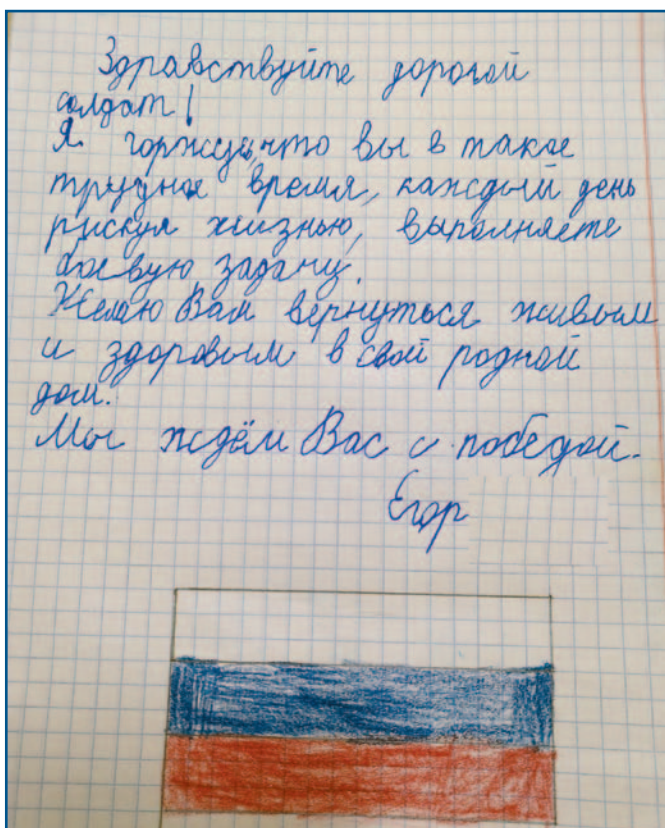 Здравствуйте дорогой
солдат!
Я горжусь, что вы в такое
трудное время, каждый день
рискуя жизнью, выполняете
боевую задачу.
Желаю Вам вернуться живым
и здоровым в свой родной
дом.
Мы ждём Вас с победой.
Егор